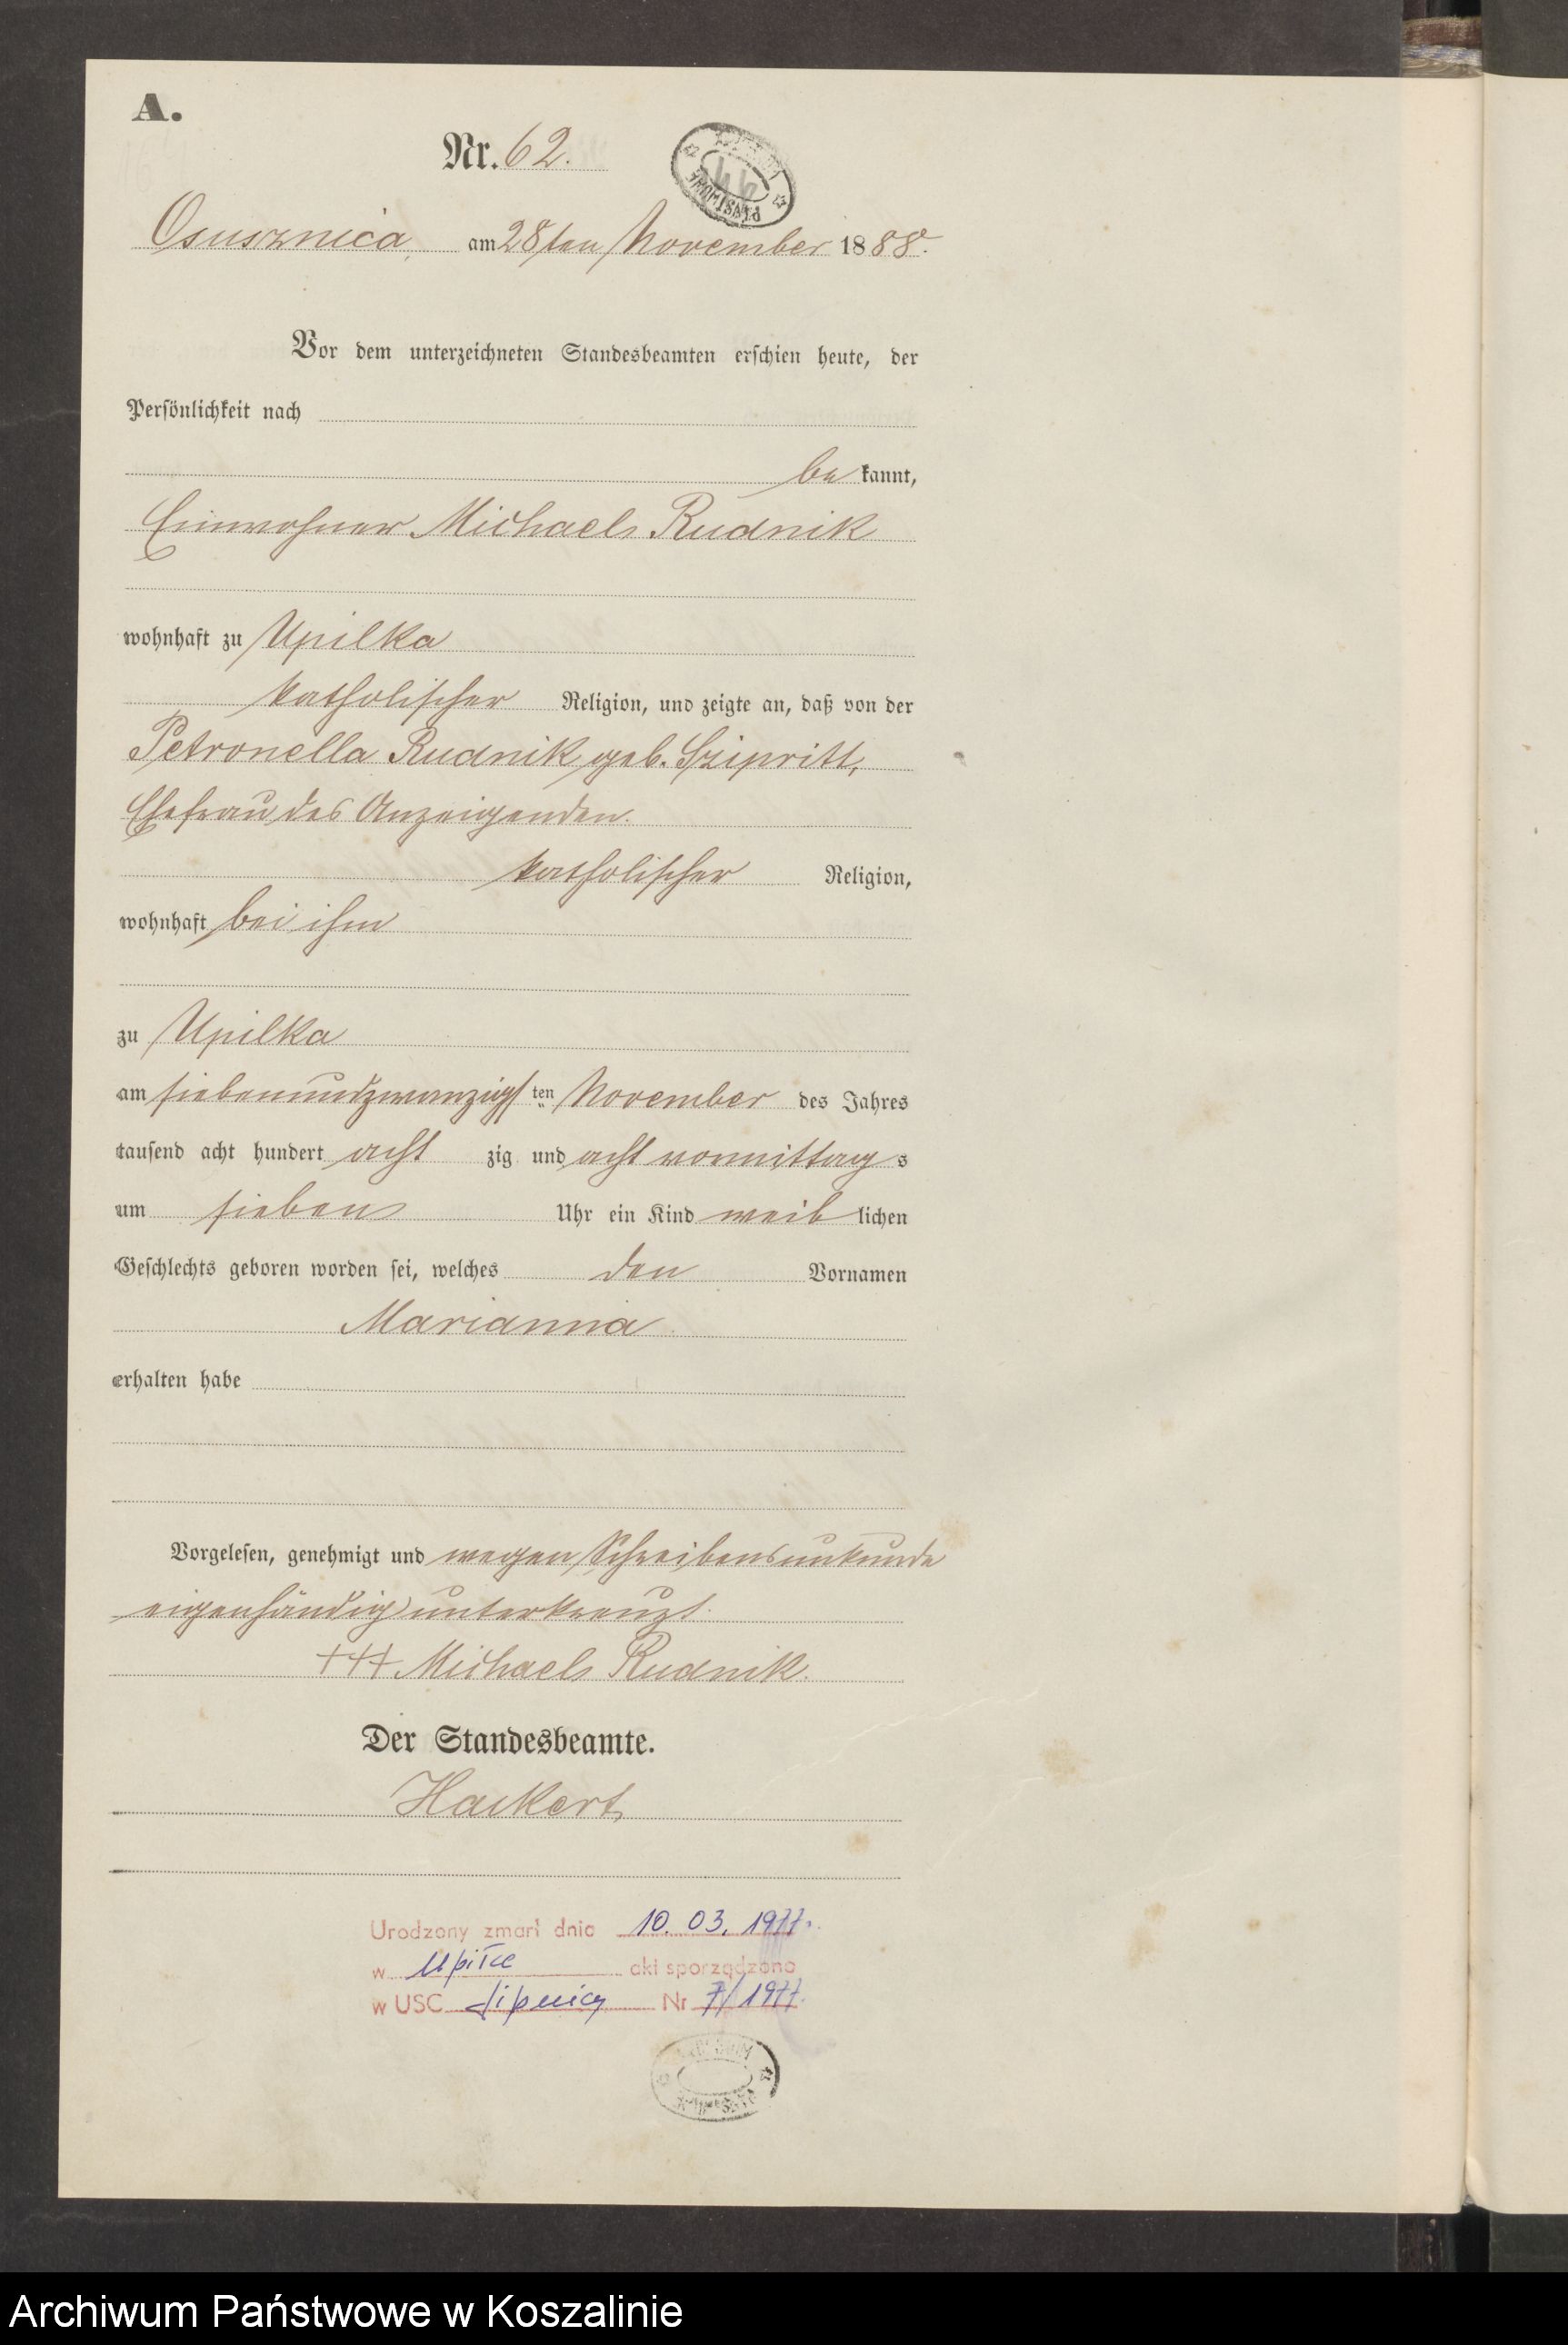 A.
Nr. 62.
Osusznica, am 28ten November 1888.
Vor dem unterzeichneten Standesbeamten erschien heute, der
Persönlichkeit nach
be kannt,
Einwohner Michael Rudnik
wohnhaft zu Upilka
katholischer Religion, und zeigte an, daß von der
Petronella Rudnik geb.
Ehefrau des Anzeigenden.
katholischer Religion,
wohnhaft bei ihm
zu Upilka
am siebenundzwanzigsten November des Jahres
tausend acht hundert acht zig und acht vormittag s
um sieben Uhr ein Kind weib lichen
Geschlechts geboren worden sei, welches den Vornamen
Marianna
erhalten habe
Vorgelesen, genehmigt und wegen Schreibensunkunde
eigenhändig unterkreuzt.
+++ Michael Rudnik.
Der Standesbeamte.
Hackert
Urodzony zmarł dnia 10. 03. 1977.
w Upiłce akt sporządzono
w USC Lipnicy Nr 7/1977.
Archiwum Państwowe w Koszalinie